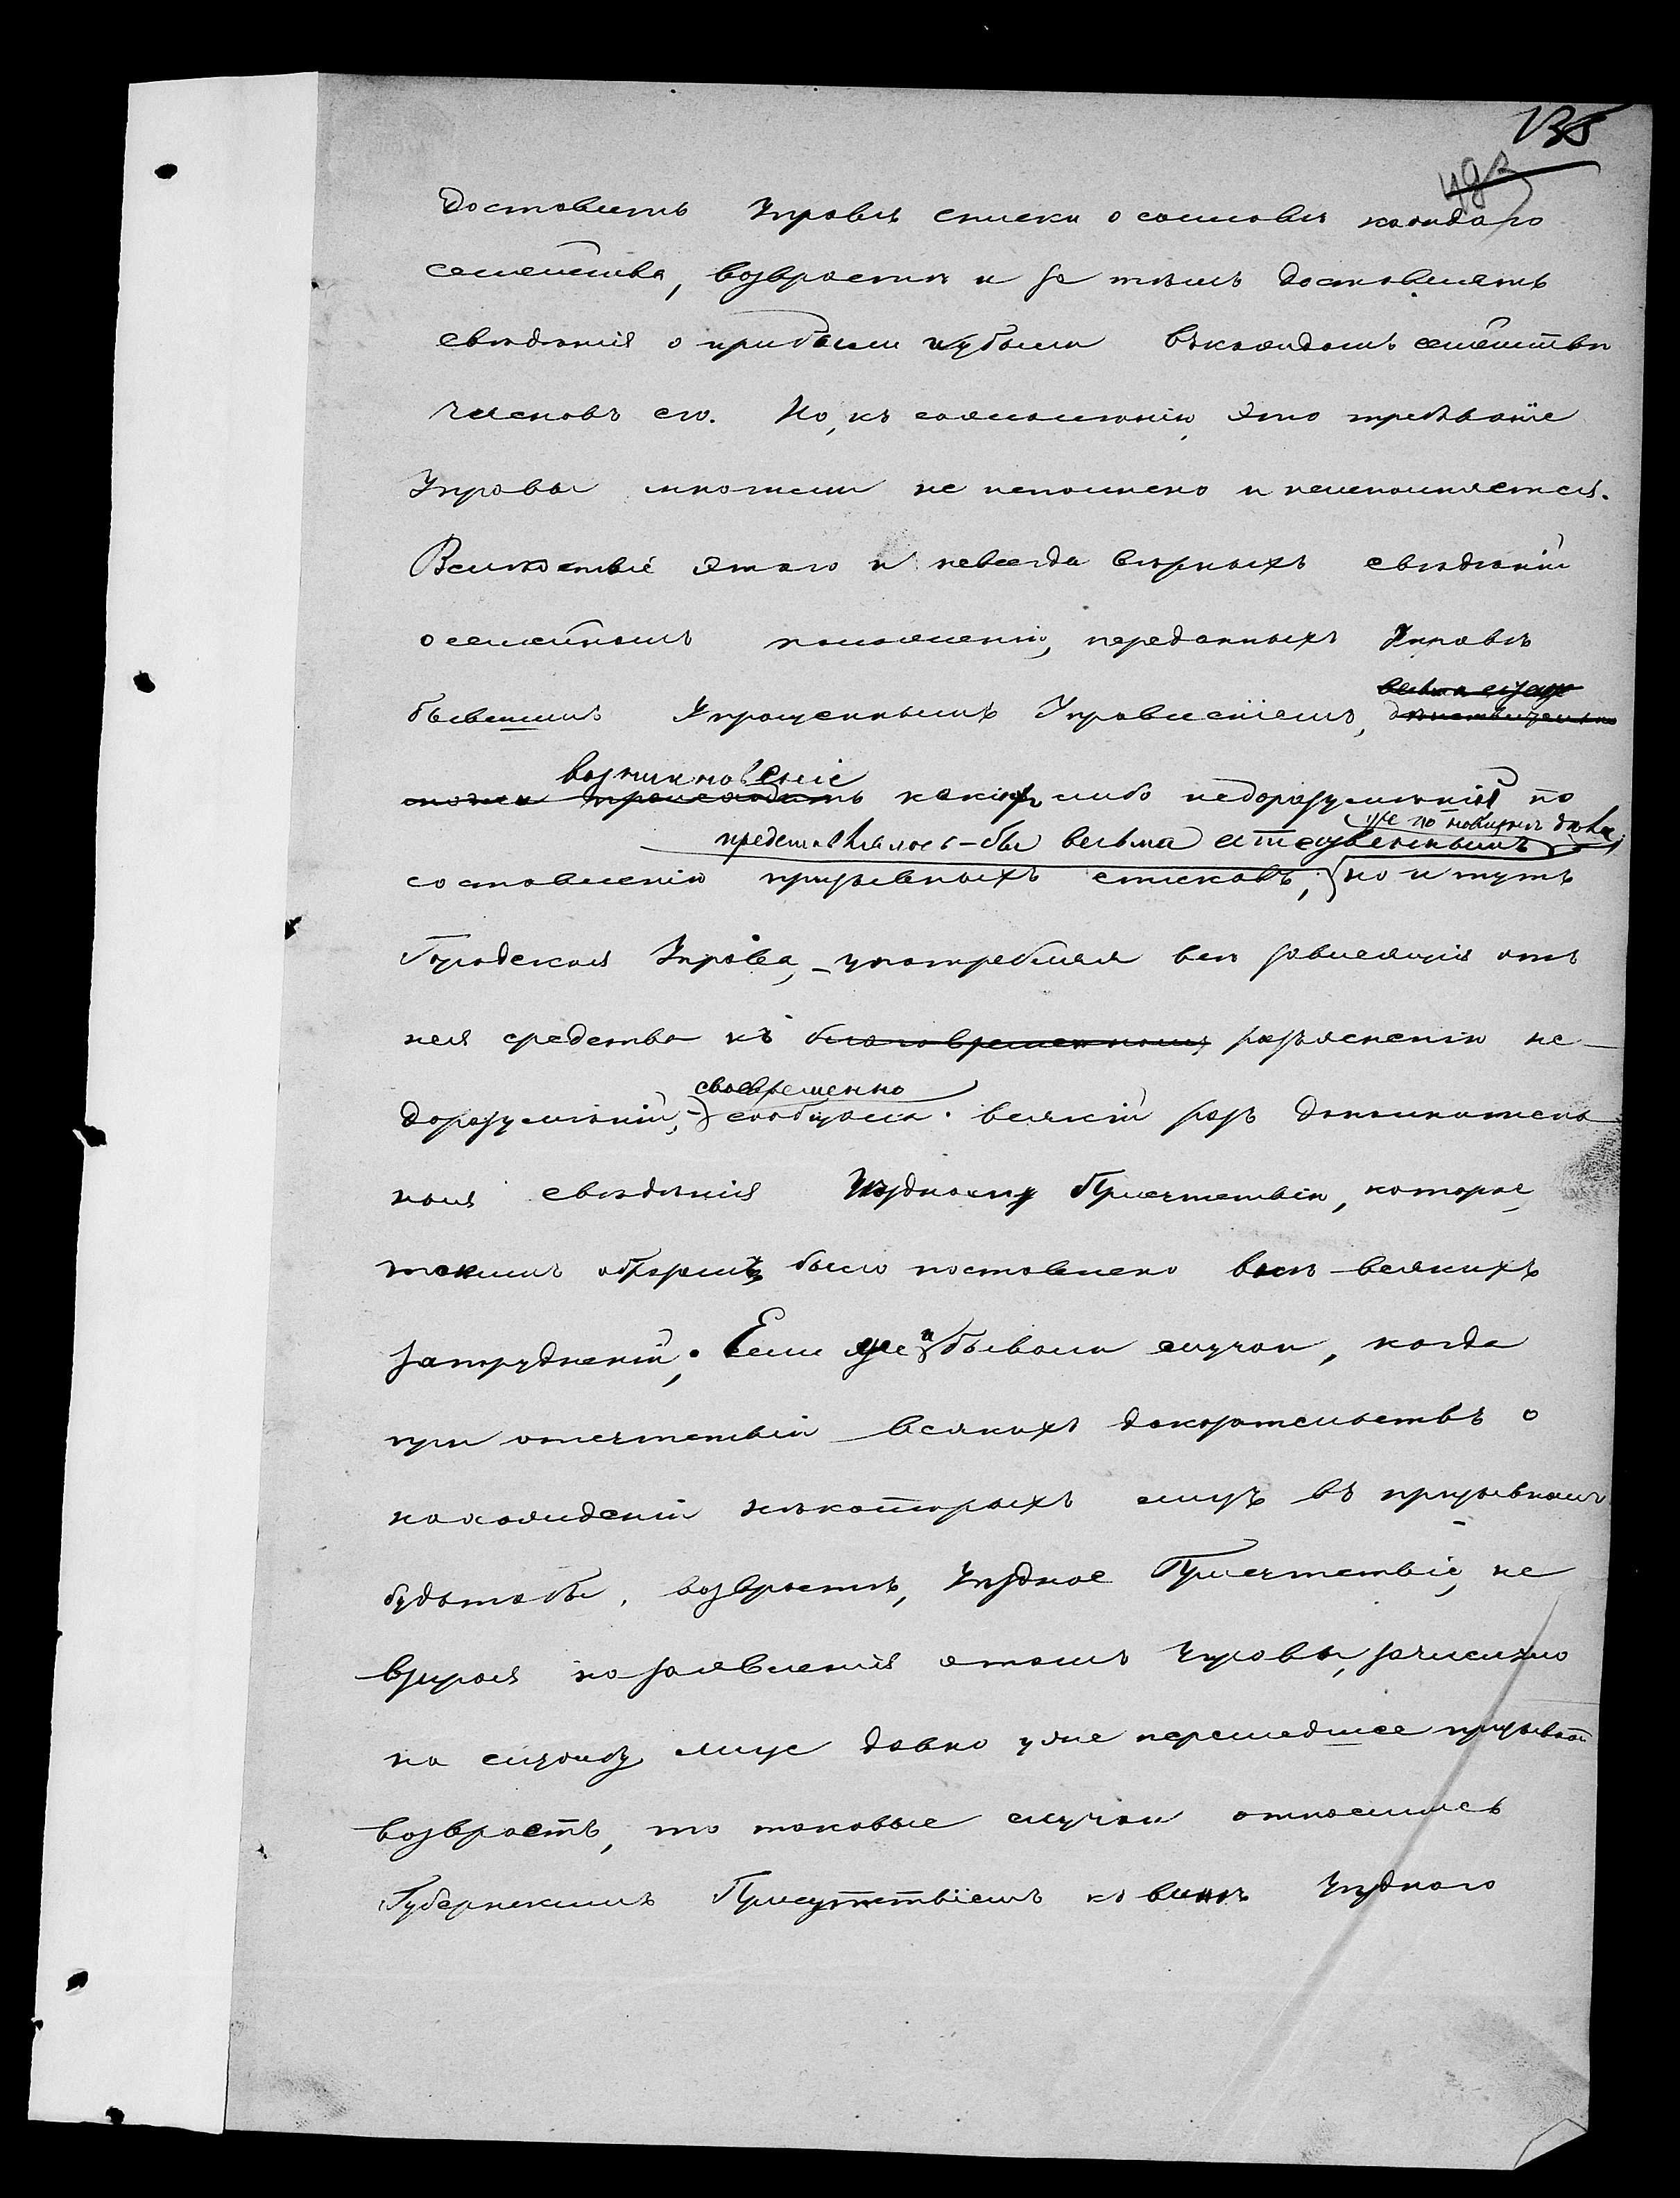 135
493
доставить Управѣ списки о составѣ каждаго
семейства, возрастѣ и за тѣмъ доставлять
свѣдѣнія о прибыли и убыли въ каждомъ семействѣ
членовъ его. Но, къ сожалѣнію, это требованіе
Управы многими не исполнено и неисполняется.
Вслѣдствіе этого и невсегда вѣрныхъ свѣдѣній
о семейномъ положеніи, переданныхъ Управѣ
бывшимъ Упрощеннымъ Управленіемъ, дѣйствительно
возникновеніе
какихъ либо недоразумѣній по
уже по новизнѣ дѣла
представлялось-бы весьма естественнымъ
составленію призывныхъ списковъ, но и тутъ
Городская Управа, употребляя всѣ зависящія отъ
нея средства къ благовременному разъясненію не-
своевременно
доразумѣній, сообщала всякій разъ дополнитель
ныя свѣдѣнія Уѣздному Присутствію, которое
такимъ образомъ было поставлено внѣ всякихъ
затрудненій. Если же и бывали случаи, когда
при отсутствіи всякихъ доказательствъ о
нахожденіи нѣкоторыхъ лицъ въ призывномъ
будто бы возрастѣ, Уѣздное Присутствіе, не
взирая на заявленія о томъ Управы, зачисляло
на службу лицъ давно уже перешедшее призывной
возрастъ, то таковые случаи относились
Губернскимъ Присутствіемъ къ винѣ Уѣзднаго